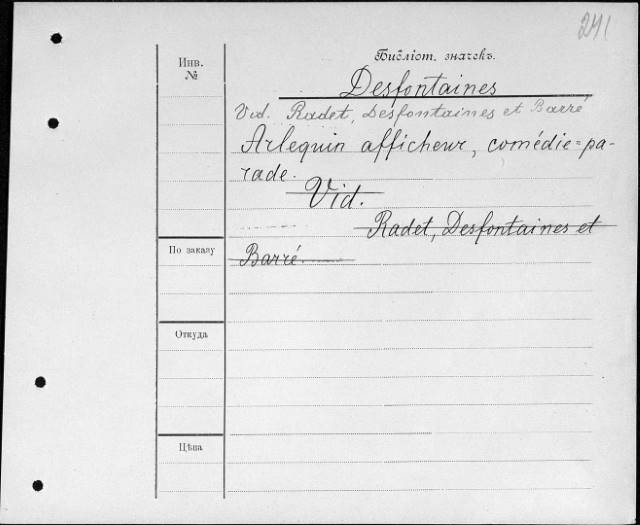 241
Инв.
№
Библіот. значекъ.
Desfontaines
Vid. Radet, Desfontaines et Barré
Arlequin afficheur, comédie=pa-
rade.
Vid.
Radet, Desfontaines et
Barré.
По заказу
Откуда
Цѣна